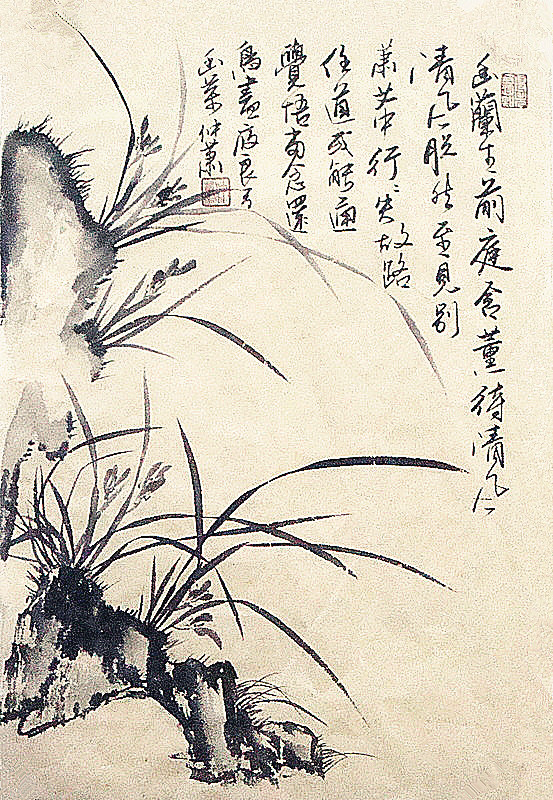 幽蘭生前庭含薰待清風
清風脫然至見別
蕭艾中行〻失故路
任道或能通
覺悟當念還
鳥盡廢良弓